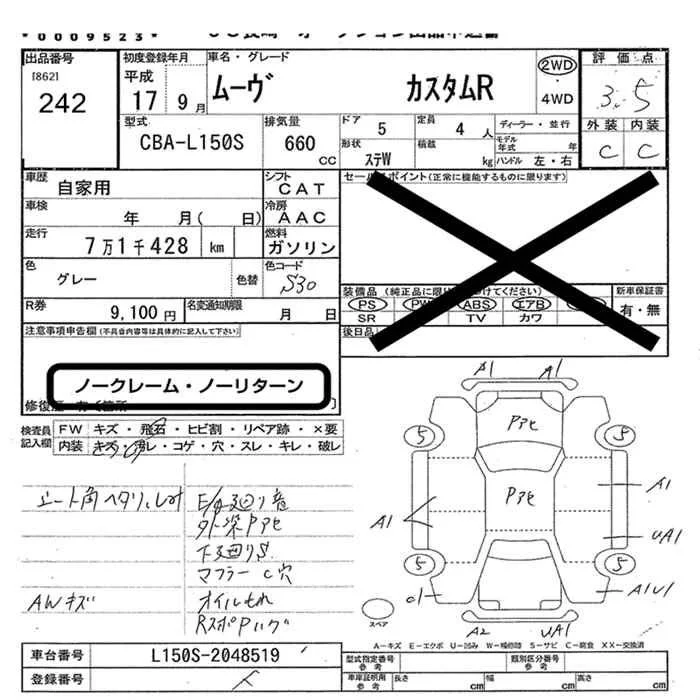 *0009523*
出品番号 初度登録年月 車名・グレード 2WD 評価点
[862] 平成
242 17 9月 ムーヴ カスタムR 4WD 3.5
型式 排気量 ドア 5 定員 4人 ディーラー・並行 外装 内装
CBA-L150S 660cc 形状 ステW 積載 kg モデル年式 年 ハンドル 左・右 C C
車歴 自家用 シフト CAT セールスポイント(正常に機能するものに限ります)
車検 年 月( 日) 冷房 AAC
走行 7万1千428 km 燃料 ガソリン
色 グレー 色替 色コード S30
装備品(純正品に限り 付けてください) 新車保証書
PS PW ABS エアB 有・無
SR TV カワ
R券 9,100円 名変通知期限 月 日
後日品
注意事項申告欄(不具合内容等は具体的に記入して下さい)
ノークレーム・ノーリターン
検査員記入欄 FW キズ・飛石・ヒビ割・リペア跡・×要
内装 キズ・汚レ・コゲ・穴・スレ・キレ・破レ
シート角ヘタリ、しみ E/g廻り音
外装Pアセ
下廻りS
マフラーC穴
AWキズ オイルもれ
RスポPハゲ
A1 A1
Pアセ
5 5
Pアセ
A1 A1
UA1
5 5
A1U1
A2 UA1
スペア
A-キズ E-エクボ U-凹み W-補修跡 S-サビ C-腐食 XX-交換済
車台番号 L150S-2048519 型式指定番号 参考 類別区分番号 参考
登録番号 車庫証明用 参考 長さ cm 幅 cm 高さ cm